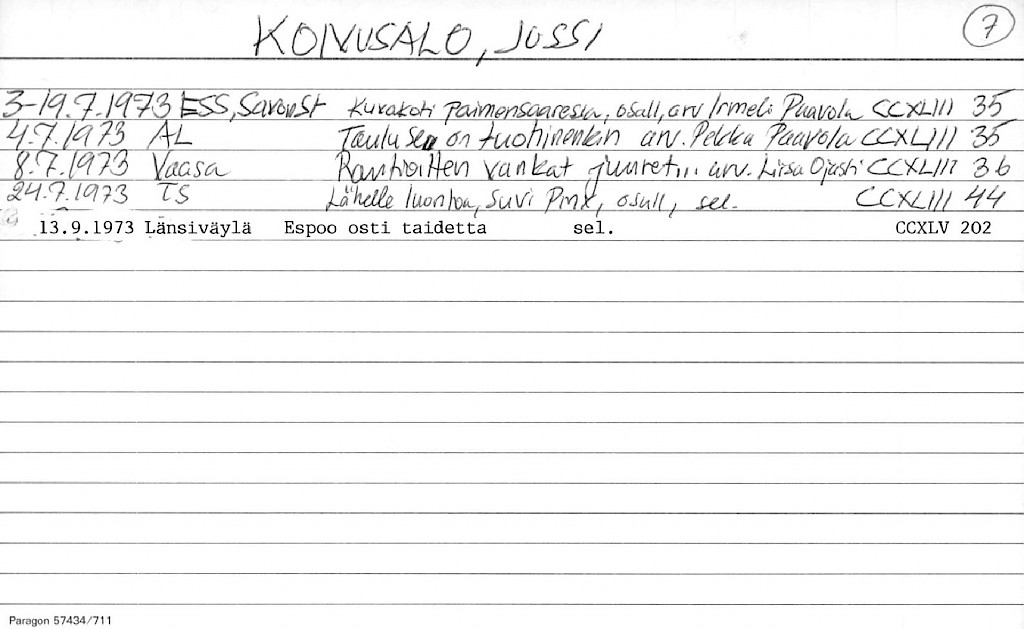 KOIVUSALO, JUSSI
7
3-19.7.1973 ESS, SavonSt Kuvakoti Paimensaaressa, osall, arv Irmeli Paavola CCXLIII 35
4.7.1973 AL Taulu se on tuohinenkin arv. Pekka Paavola CCXLIII 35
8.7.1973 Vaasa vankat juuret... arv. Liisa Ojasti CCXLIII 36
24.7.1973 TS Lähelle luontoa, Suvi Pinx, osall, sel. CCXLIII 44
13.9.1973 Länsiväylä Espoo osti taidetta sel. CCXLV 202
Paragon 57434/711